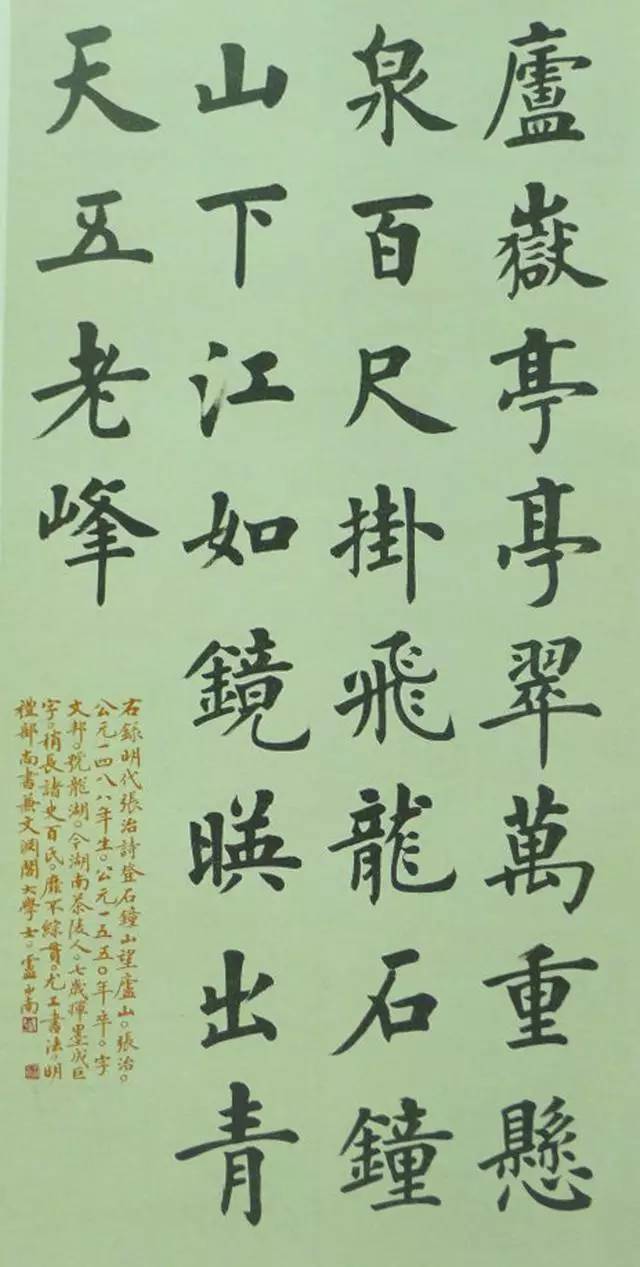 廬嶽亭亭翠萬重懸
泉百尺掛飛龍石鐘
山下江如鏡暎出青
天五老峰
右録明代張治詩登石鐘山望廬山。張治。
公元一四八八年生。公元一五五〇年卒。字
文邦。號龍湖。今湖南茶陵人。七歲揮墨成巨
字。稍長諸史百氏。靡不綜貫。尤工書法。明
禮部尚書兼文淵閣大學士。盧中南